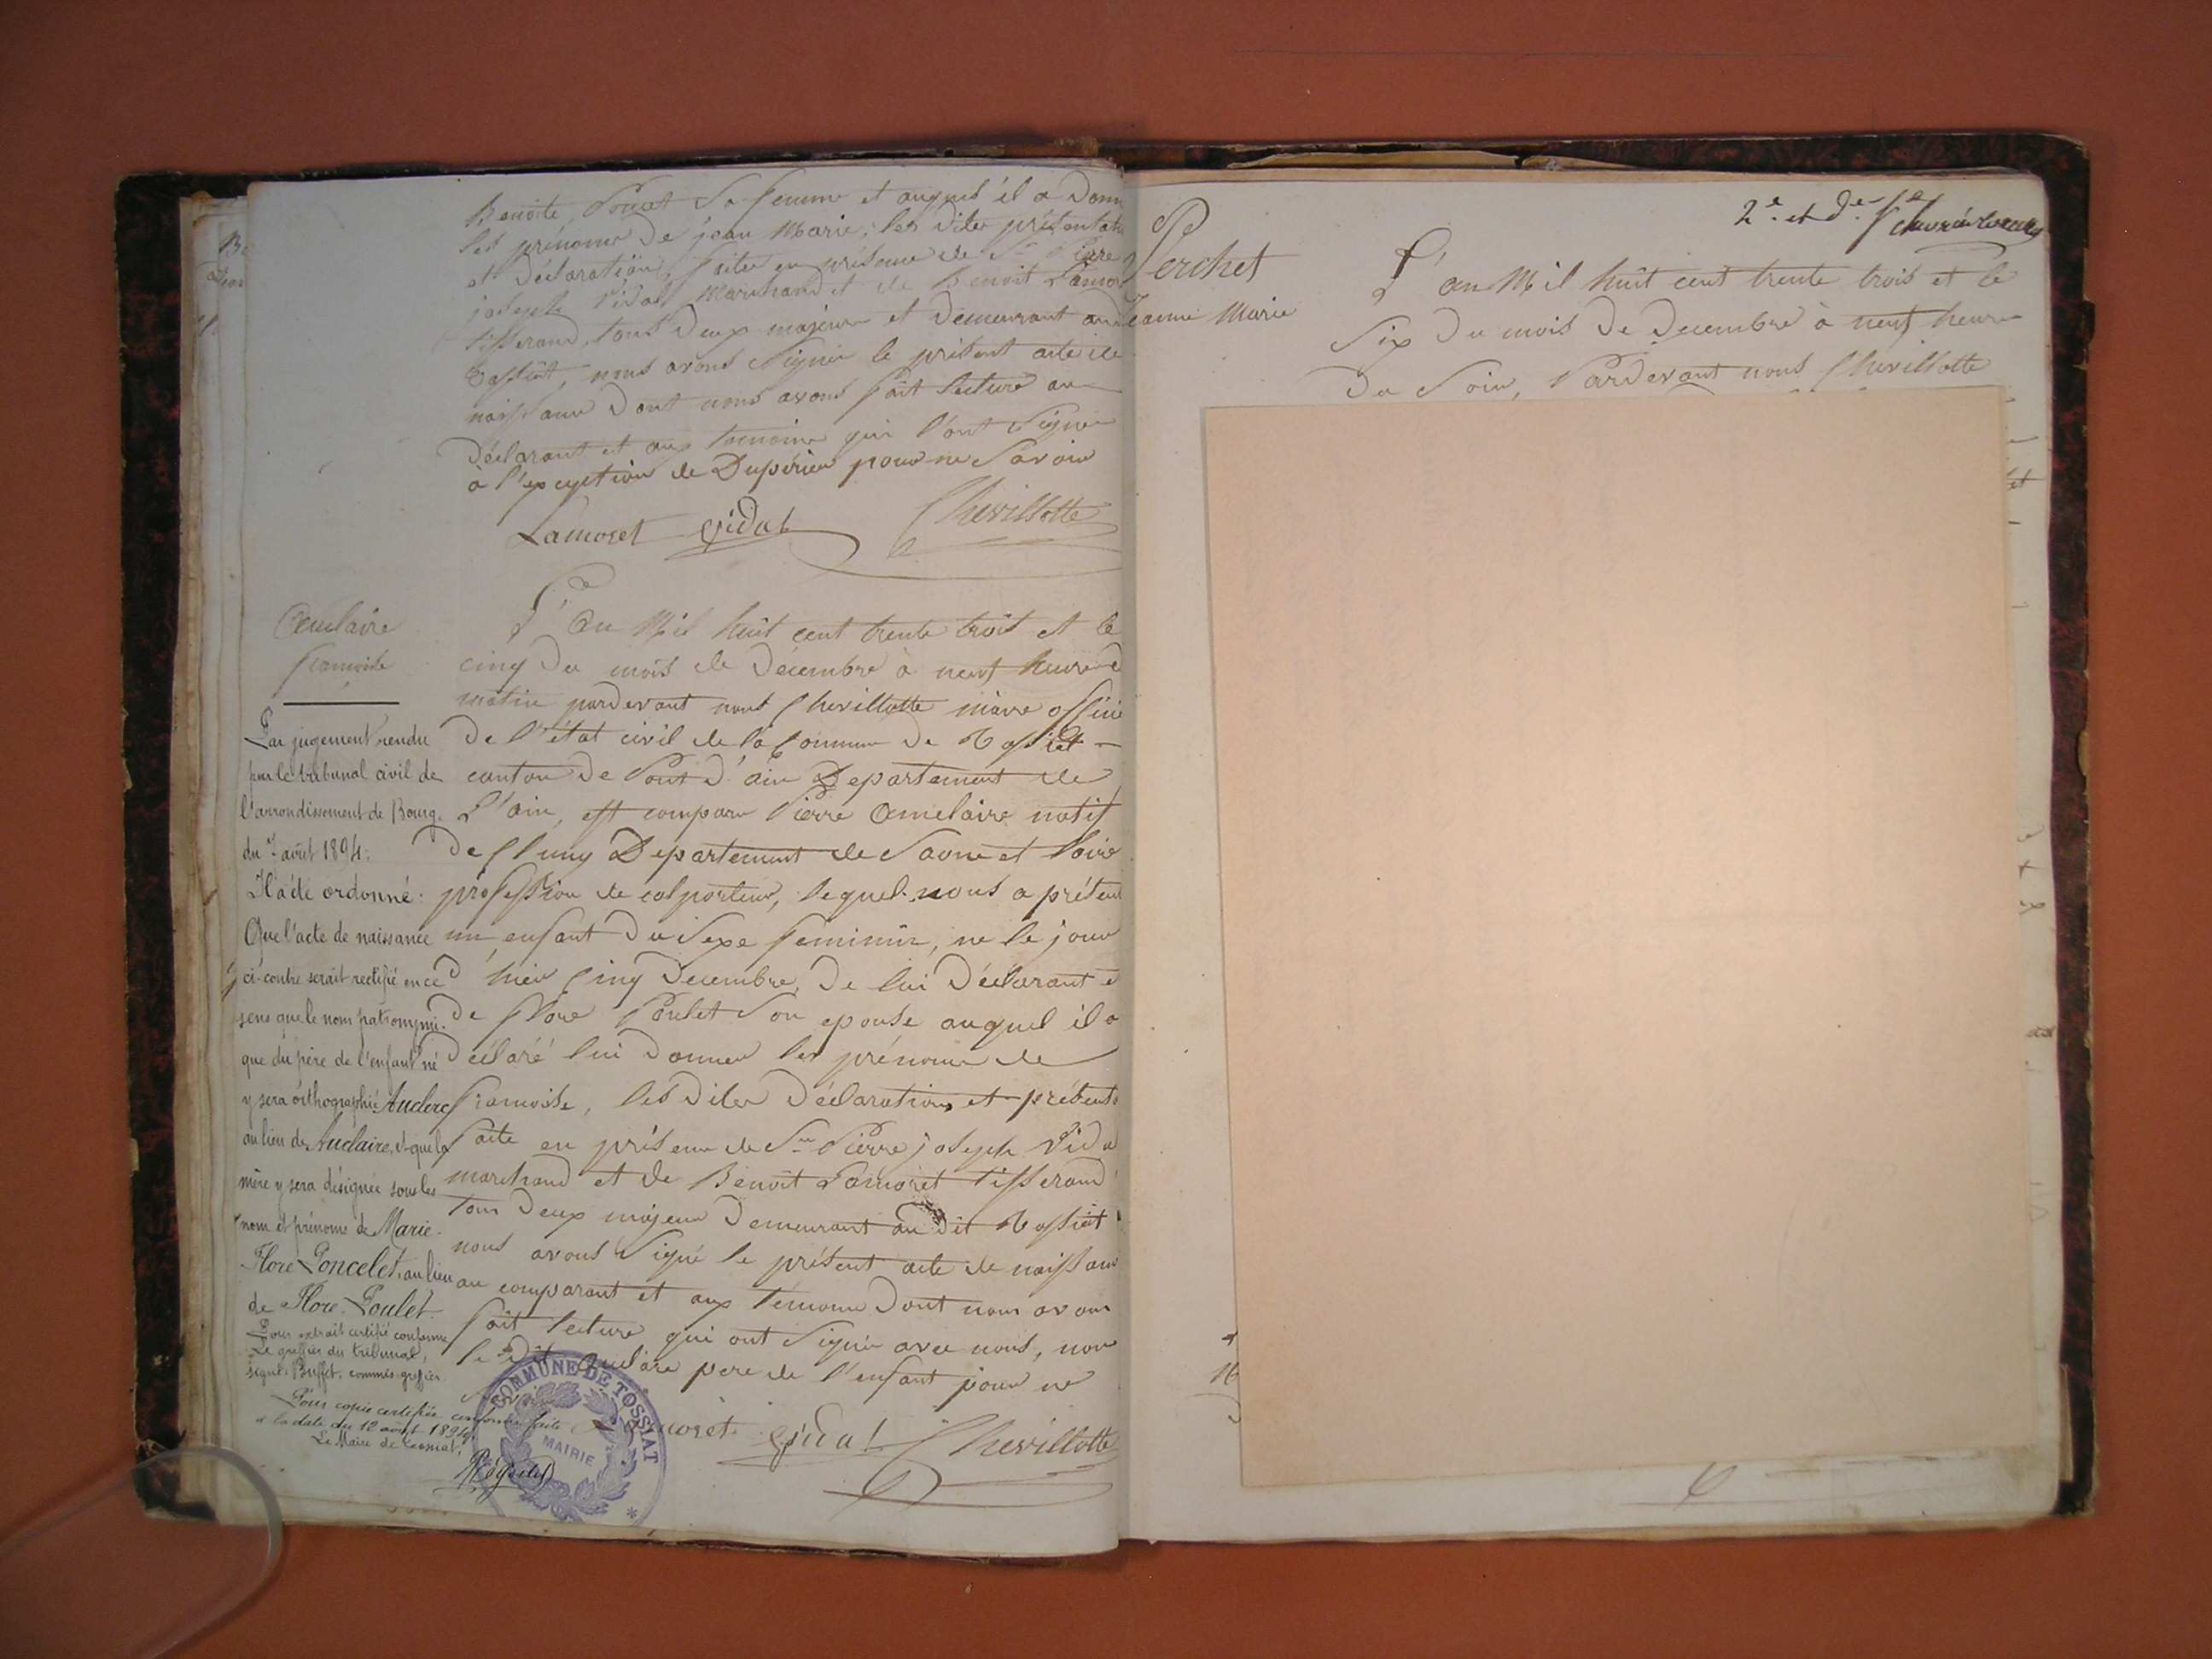 Benoite Poncet Sa femme et auquel il a Donn
les prénoms De jean Marie; les Dites présentat
et Déclaration, faites en présence de Sr Pierre
joseph Vidal Marchand et de Benoit Lamor
tisserand, tous Deux majeurs et Demeurant au
Tossiat, nous avons Signés le présent acte de
naissance Dont nous avons fait lecture au
Déclarant et aux temoins qui l'ont Signer
à l'exception de Dupérier pour ne Savoir
Lamoret Vidal Chevillotte
Auclaire
francoise
L'an Mil huit cent trente trois et le
cinq Du mois de Décembre à neuf heures d
matin pardevant nous Chevillotte maire offici
De l'état civil de la Commune De Tossiat
canton De Pont D'ain Departement de
L'ain, est comparu Pierre Auclaire natif
De Cluny Departement de Saone et Loire
profession de colporteur, lequel nous a présen
un enfant Du Sexe feminin, ne le jour
D'hier Cinq Decembre, De lui Déclarant e
De flore Poulet Son epouse auquel il a
Déclaré lui Donner les prénoms de
francoise, les Dites Déclarations et présenta
faite en présence de Sr Pierre joseph Vida
marchand et De Benoit Lamoret tisserand
tous Deux majeurs Demeurant au Dit Tossiat
nous avons Signé le présent acte de naissan
au comparant et aux témoins Dont nous avons
fait lecture qui ont Signés avec nous, non
le Dit Auclaire pere de l'enfant pour ne
Lamoret Vidal Chevillotte
Par jugement rendu
par le tribunal civil de
l'arrondissement de Bourg.
du 7 août 1894:
Il a été ordonné:
Que l'acte de naissance
ci-contre serait rectifié en ce
sens que le nom patronymi-
que du père de l'enfant né
y sera orthographié Auclerc
au lieu de Auclaire, et que la
mère y sera désignée sous les
nom et prénoms de Marie-
Flore Poncelet, au lieu
de Flore Poulet
Pour extrait certifié conforme
Le greffier du tribunal,
signé: Buffet, commis-greffier.
Pour copie certifiée conforme faite
à la date du 12 août 1894.
Le Maire de Tossiat,
COMMUNE DE TOSSIAT
MAIRIE
2e et De
Perchet
Jeanne Marie
L'an Mil huit cent trente trois et le
Six Du mois De Decembre à neuf heures
Du Soir, Pardevant nous Chevillotte